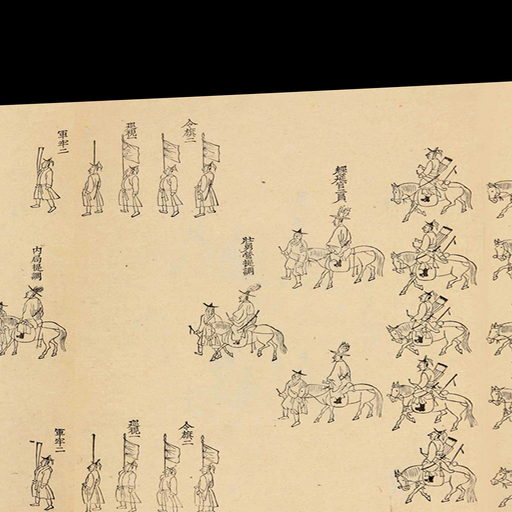 經筵官二員
令旗二
巡視二
軍牢二
壯勇營提調
內局提調
令旗二
巡視二
軍牢二